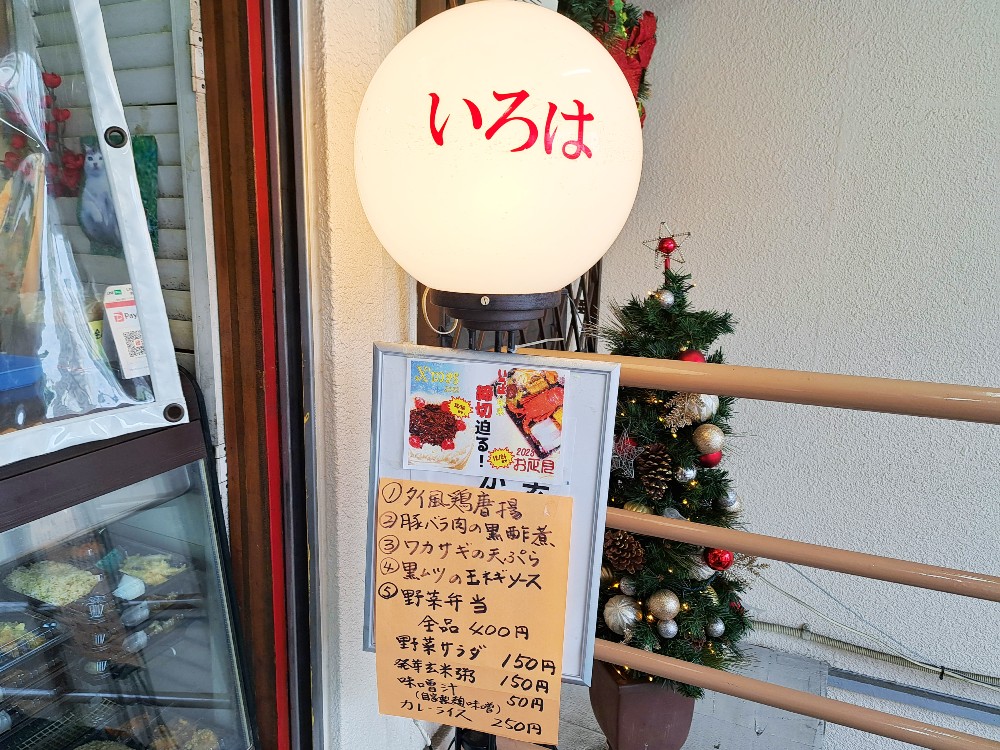 いろは
X'mas
締切迫る!
2023
お正月
Pay
①タイ風鶏唐揚
②豚バラ肉の黒酢煮
③ワカサギの天ぷら
④黒ムツの玉ネギソース
⑤野菜弁当
全品400円
野菜サラダ 150円
発芄玄米粥 150円
味噌汁 50円
(自家製麹味噌)
カレーライス 250円